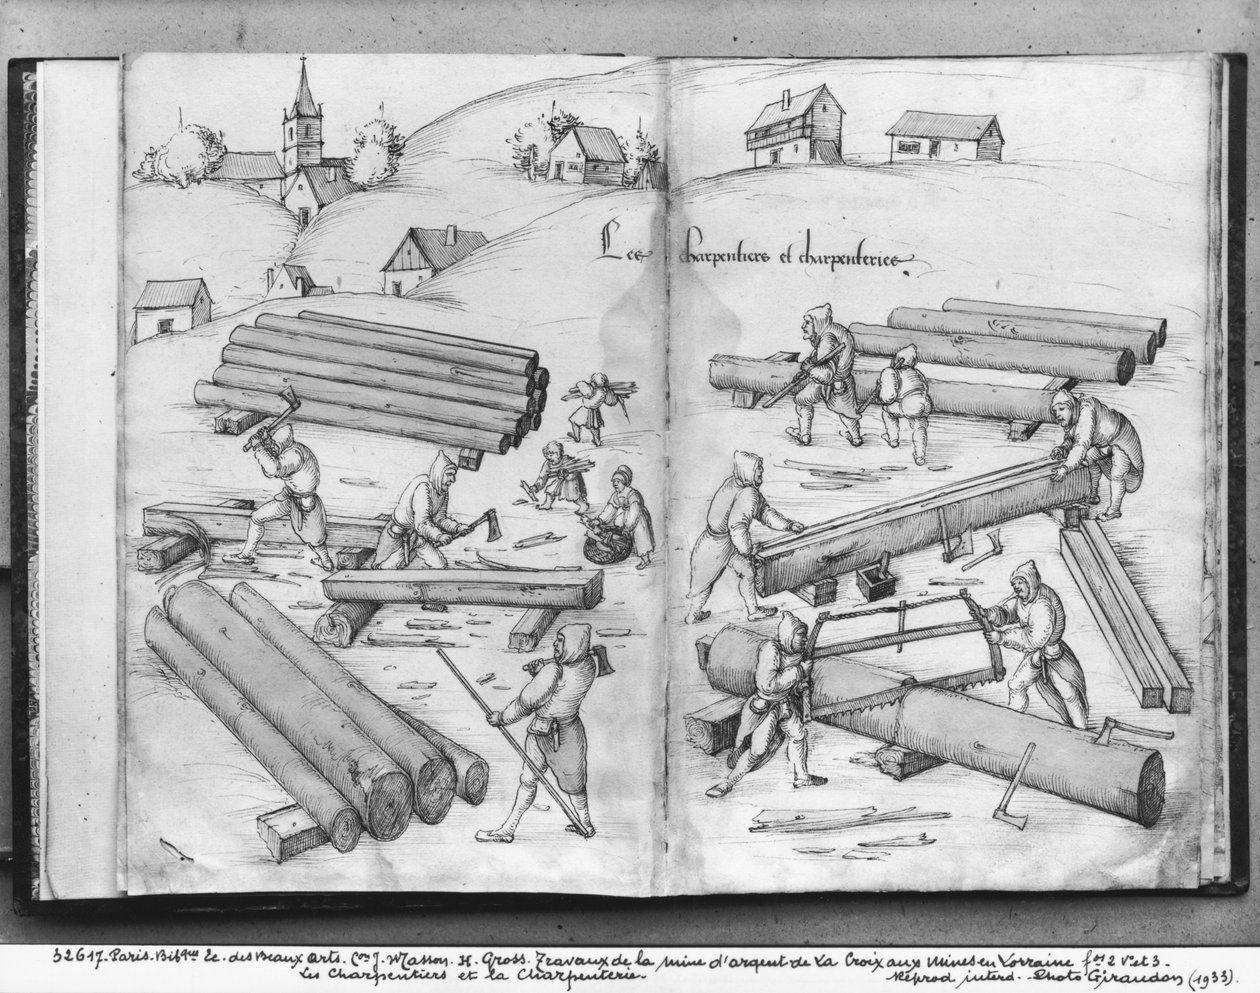 Les charpentiers et charpenteries.
32617. Paris. Bibque Ec. des Beaux Arts. Con J. Masson. H. Gross. Travaux de la mine d'argent de La Croix aux Mines en Lorraine fos 2 vo et 3.
Les Charpentiers et la Charpenterie.
Reprod interd. Photo Giraudon (1933).